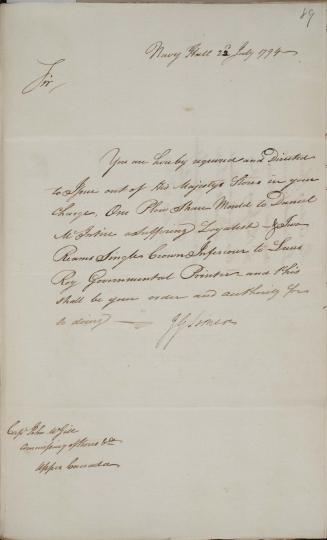 89
Navy Hall 22 July 1794
Sir,
You are hereby required and Directed
to Issue out of His Majestys Stores in your
charge, One Plow Share Mould to Daniel
a Suffering Loyalist & Two
Reams Single Crown Inferiour to Louis
Roy Governmental Printer and this
shall be your order and authority for
so doing
J G Simcoe
Capt John McGill
Commissary of Stores &c
Upper Canada